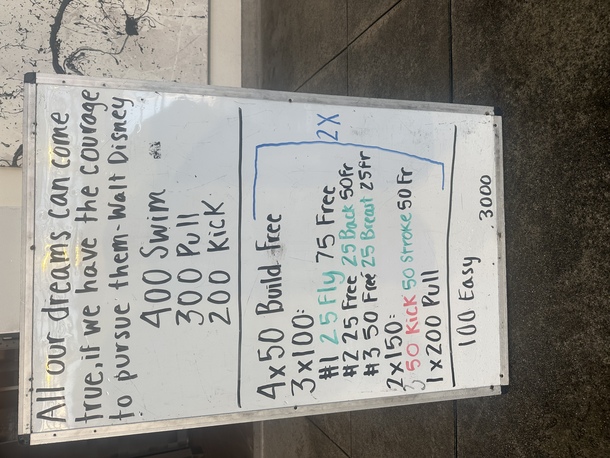 All our dreams can come
true, if we have the courage
to pursue them - Walt Disney
400 Swim
300 Pull
200 Kick
4x50 Build Free
3x100:
#1 25 Fly 75 Free
#2 25 Free 25 Back 50Fr
#3 50 Free 25 Breast 25Fr
2x150:
50 Kick 50 Stroke 50 Fr
1x200 Pull
2X
100 Easy
3000